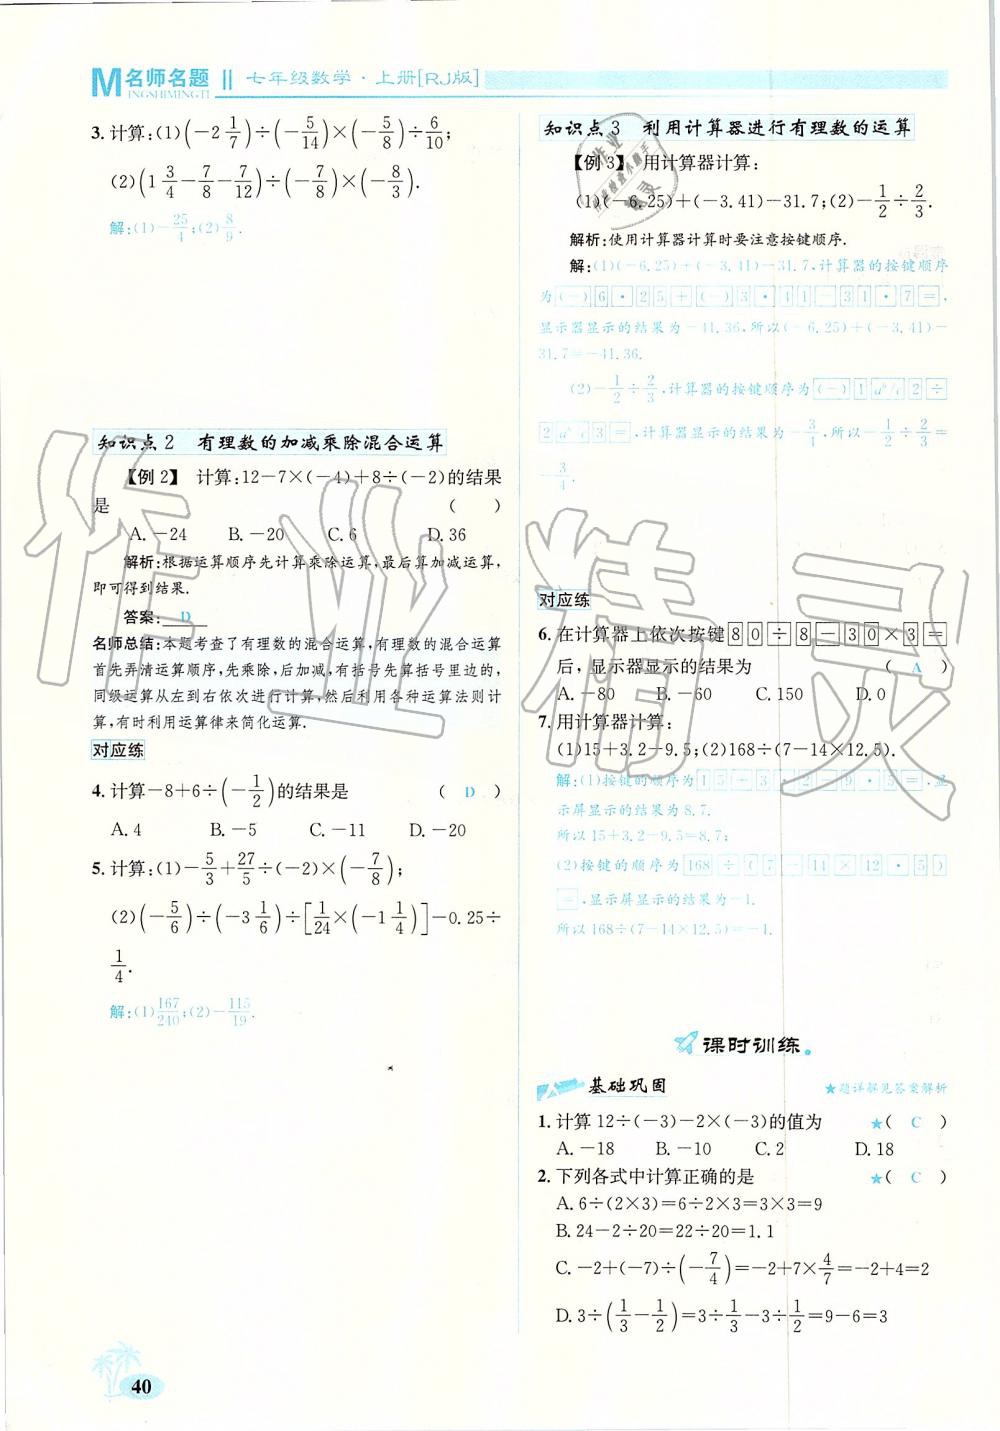 M名师名题 七年级数学·上册[RJ版]
INGSHIMINGTI
3.计算:(1)(-2 1/7)÷(-5/14)×(-5/8)÷6/10;
(2)(1 3/4-7/8-7/12)÷(-7/8)×(-8/3).
解:(1)-25/4;(2)8/9.
知识点2 有理数的加减乘除混合运算
【例2】 计算:12-7×(-4)+8÷(-2)的结果
是 ( )
A.-24 B.-20 C.6 D.36
解析:根据运算顺序先计算乘除运算,最后算加减运算,
即可得到结果.
答案: D
名师总结:本题考查了有理数的混合运算,有理数的混合运算
首先弄清运算顺序,先乘除,后加减,有括号先算括号里边的,
同级运算从左到右依次进行计算,然后利用各种运算法则计
算,有时利用运算律来简化运算.
对应练
4.计算-8+6÷(-1/2)的结果是 ( D )
A.4 B.-5 C.-11 D.-20
5.计算:(1)-5/3+27/5÷(-2)×(-7/8);
(2)(-5/6)÷(-3 1/6)÷[1/24×(-1 1/4)]-0.25÷
1/4.
解:(1)167/240;(2)-115/19.
40
知识点3 利用计算器进行有理数的运算
【例3】 用计算器计算:
(1)(-6.25)+(-3.41)-31.7;(2)-1/2÷2/3.
解析:使用计算器计算时要注意按键顺序.
解:(1)(-6.25)+(-3.41)-31.7,计算器的按键顺序
为(-)6·25+(-)3·41-31·7=,
显示器显示的结果为-41.36,所以(-6.25)+(-3.41)-
31.7=-41.36.
(2)-1/2÷2/3,计算器的按键顺序为(-)1 a b/c 2÷
2 a b/c 3=,计算器显示的结果为-3/4,所以-1/2÷2/3=
-3/4.
对应练
6.在计算器上依次按键80÷8-30×3=
后,显示器显示的结果为 ( A )
A.-80 B.-60 C.150 D.0
7.用计算器计算:
(1)15+3.2-9.5;(2)168÷(7-14×12.5).
解:(1)按键的顺序为15+3·2-9·5=,显
示屏显示的结果为8.7,
所以15+3.2-9.5=8.7;
(2)按键的顺序为168÷(7-14×12·5)
=,显示屏显示的结果为-1.
所以168÷(7-14×12.5)=-1.
课时训练
基础巩固 ★题详解见答案解析
1.计算12÷(-3)-2×(-3)的值为 ★( C )
A.-18 B.-10 C.2 D.18
2.下列各式中计算正确的是 ★( C )
A.6÷(2×3)=6÷2×3=3×3=9
B.24-2÷20=22÷20=1.1
C.-2+(-7)÷(-7/4)=-2+7×4/7=-2+4=2
D.3÷(1/3-1/2)=3÷1/3-3÷1/2=9-6=3
作业精灵